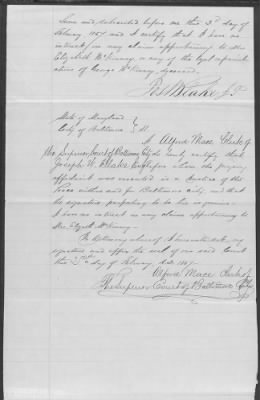 Sworn and subscribed before me this 2d day of
February 1867 and I certify that I have no
interest in any claim appertaining to Mrs
Elizabeth McKinney, or any of the legal representative
claims of George McKinney, deceased.
Jos W Blake J.P.
State of Maryland
City of Baltimore } ss.
I Alfred Mace Clerk of
the Superior Court of Baltimore City do certify that
Joseph W. Blake Esq before whom the foregoing
affidavit was executed is a Justice of the
Peace within and for Baltimore city and that
the signature purporting to be his is genuine
I have no interest in any claim appertaining to
Mrs Elizabeth McKinney.
In testimony whereof I hereunto set my
signature and affix the seal of our said Court
this day of February A.D. 1867.
Alfred Mace Clerk of
The Superior Court of Baltimore City